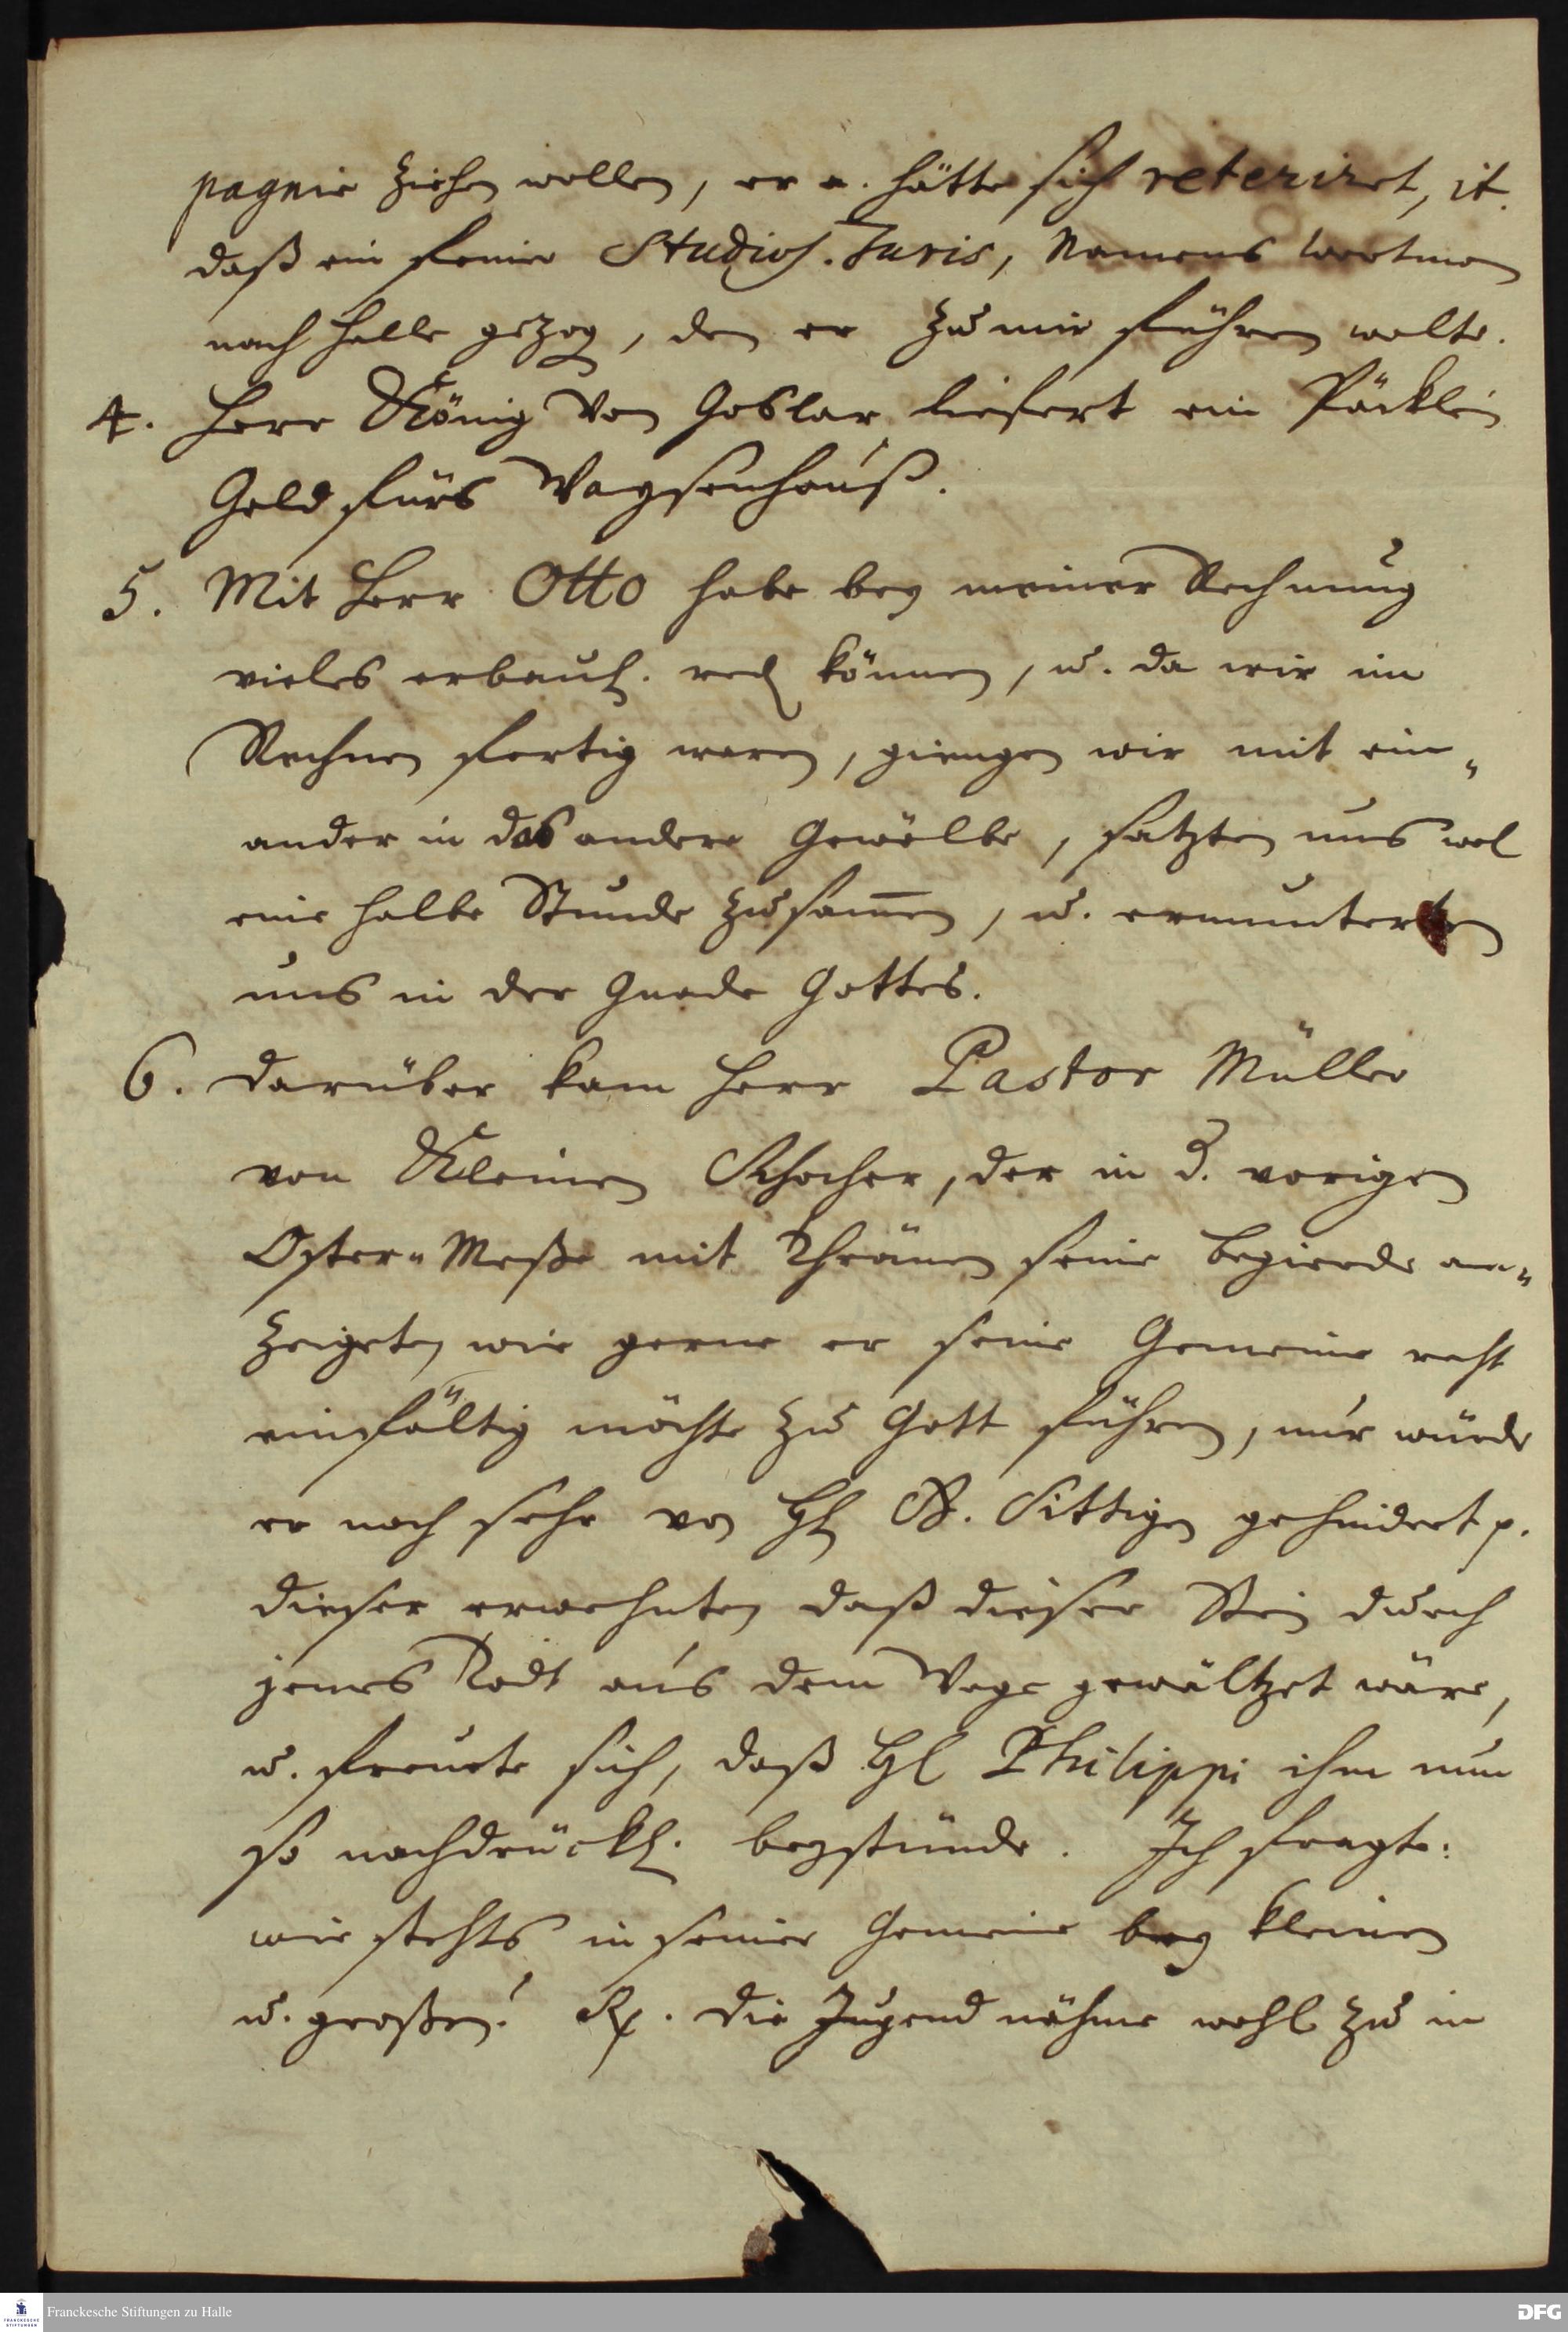 pagnie ziehen wollen, er a. hätte sich reteriret, it.
daß ein feiner Studios. Juris, Namens Wortman
nach Halle gezog, den er zu mir führen wolte.
4. Herr König von Goslar liefert ein Päcklein
Geld fürs Waysenhauß.
5. Mit Herr Otto habe bey meiner Rechnung
vieles erbaul. red können, u. da wir im
Rechnen fertig waren, giengen wir mit ein„
ander in das andere Gewölbe, satzten uns wol
eine halbe Stunde zusam̄en, u. ermunterten
uns in der Gnade Gottes.
6. Darüber kam Herr Pastor Müller
von Kleinen Schocher, der in d. vorigen
Oster„Meße mit Thränen seine Begierde an„
zeigete, wie gerne er seine Gemeine recht
einfältig möchte zu Gott führen, nur würde
er noch sehr von HE. D. Sittigen gehindert p.
Dieser erwehnte, daß dieser Stein durch
jenes Todt aus dem Wege gewältzet wäre,
u. freuete sich, daß HE Philippi ihm nun
so nachdrückl. beystünde. Ich fragte:
wie stehts in seiner Gemeine bey kleinen
u. großen? Rx. Die Jugend nähme wohl zu in
Franckesche Stiftungen zu Halle
DFG
FRANCKESCHE
STIFTUNGEN